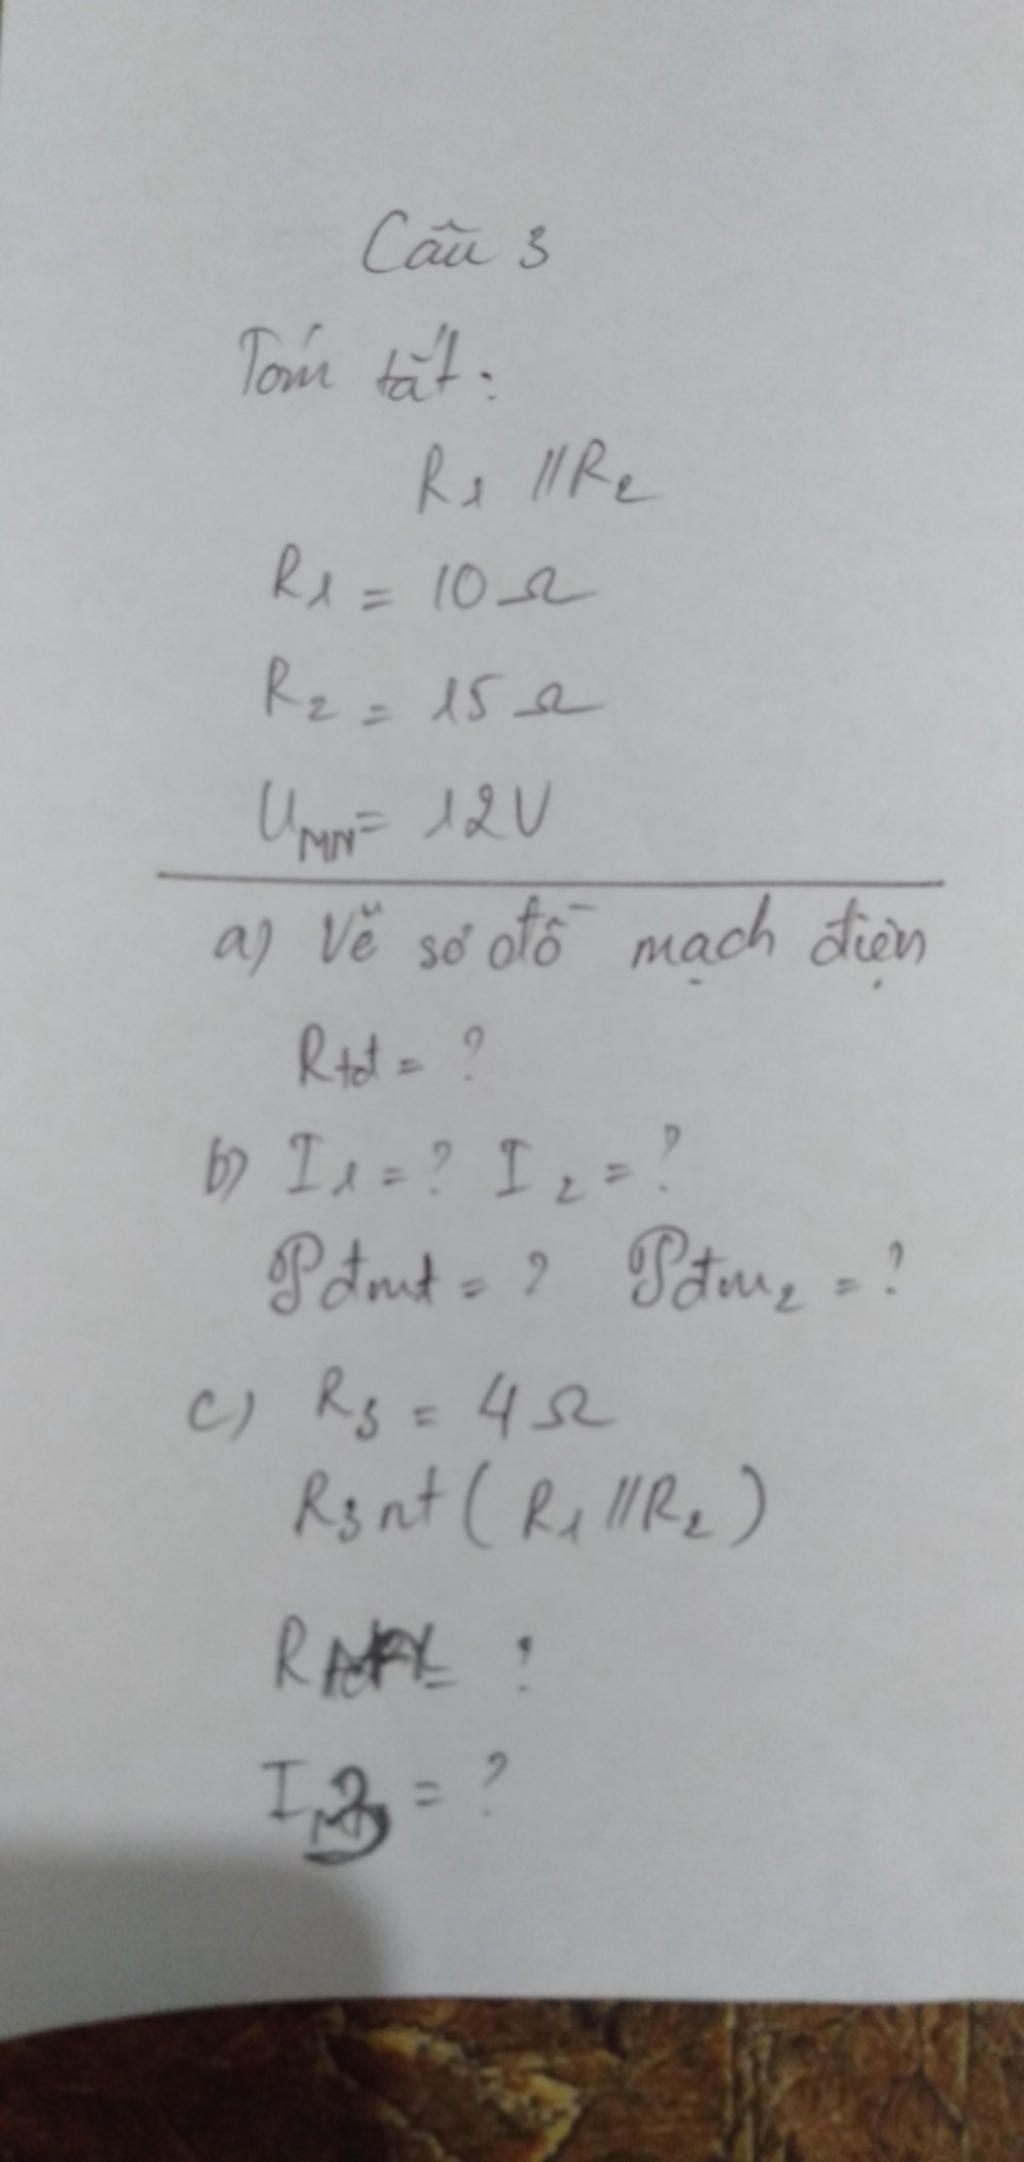 Câu 3
Tóm tắt:
R1 // R2
R1 = 10 Ω
R2 = 15 Ω
UMN = 12V
a) Vẽ sơ đồ mạch điện
Rtđ = ?
b) I1 = ? I2 = ?
Pđmt = ? Pđm2 = ?
c) R3 = 4 Ω
R3 nt ( R1 // R2 )
= ?
= ?